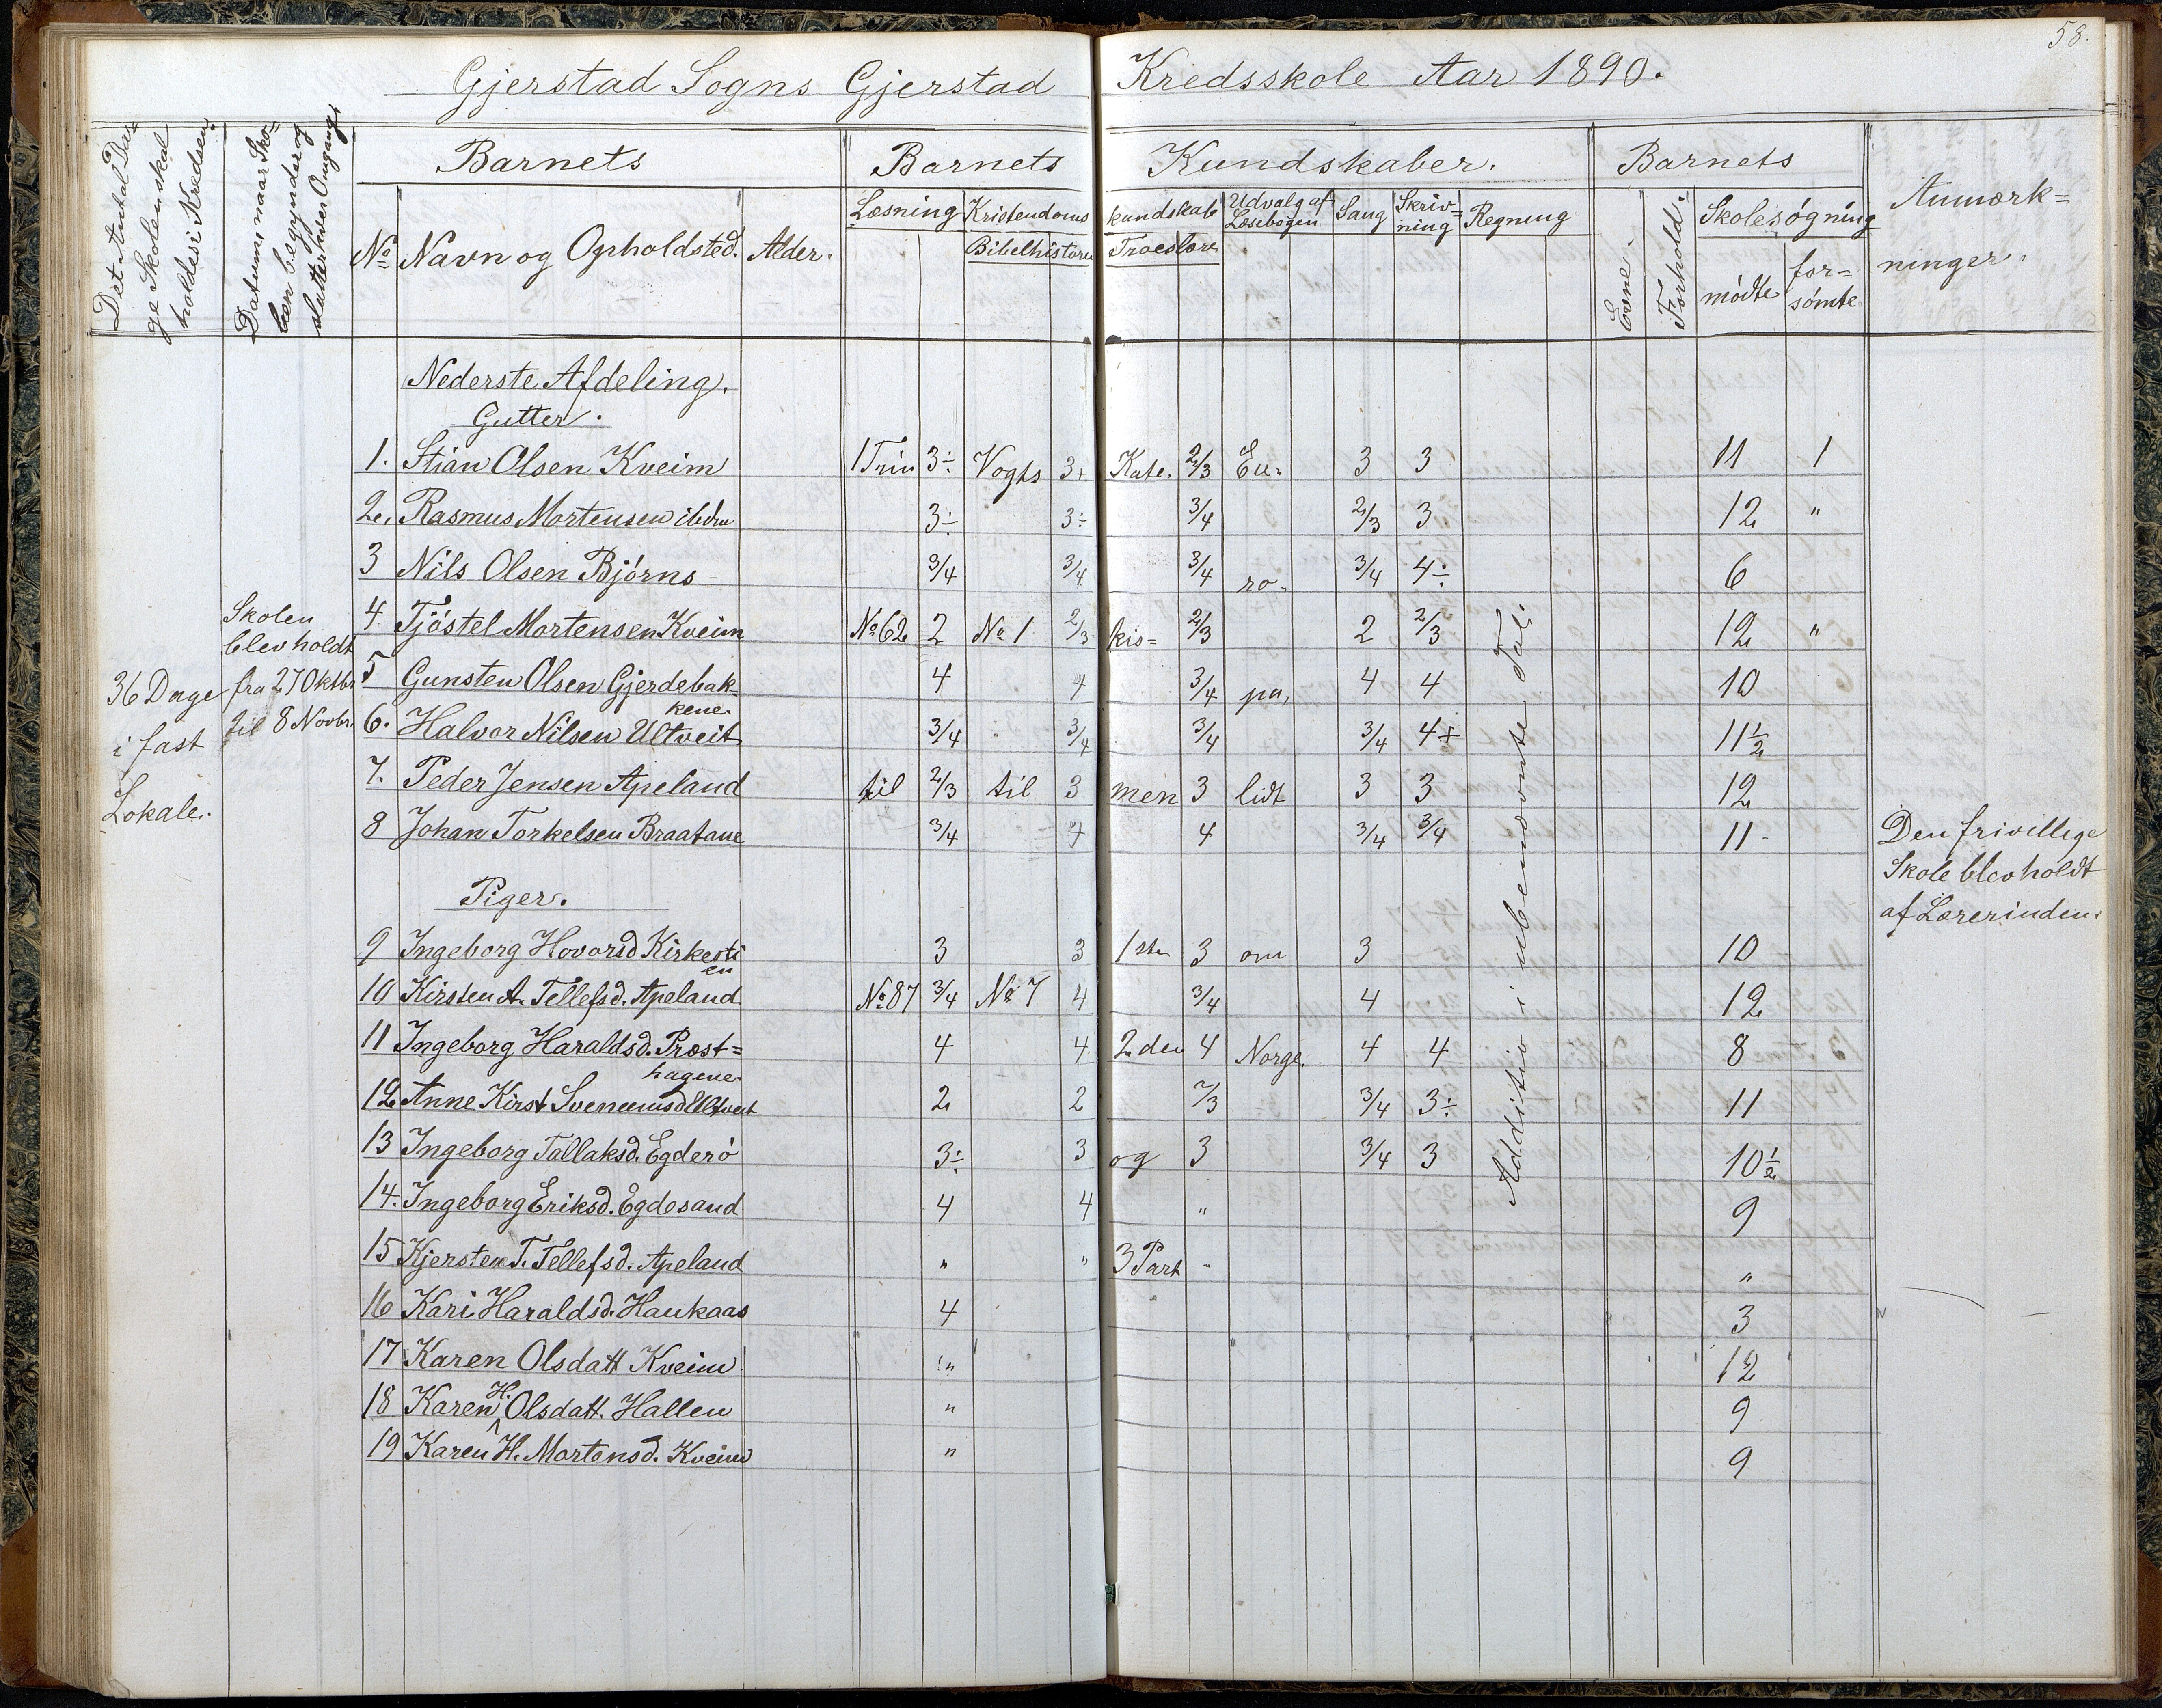 58.
Gjerstad Sogns Gjerstad Kredsskole Aar 1890.
Det Antal Da=
ge Skolen skal
holdes i Kredsen.
Datum, naar Sko=
len begynder og
slutter hver Omgang.
Barnets
No Navn og Opholdsted. Alder.
Barnets Kundskaber.
Læsning Kristendoms kundskab Udvalg af Læsebogen Sang Skriv=ning Regning
Bibelhistorie Troeslære
Barnets
Evne. Forhold. Skolesøgning
mødte for=sømte
Anmærk=
ninger.
36 Dage
i fast
Lokale.
Skolen
blev holdt
fra 27 Oktbr
til 8 Novbr.
Nederste Afdeling.
Gutter.
1. Stian Olsen Kveim 1 Trin 3÷ Vogts 3+ Kate. 2/3 Eu- 3 3 11 1
2. Rasmus Mortensen ibdm 3÷ 3÷ 3/4 2/3 3 12 "
3 Nils Olsen Bjørns- 3/4 3/4 3/4 ro- 3/4 4÷ 6
4 Tjøstel Mortensen Kveim No 62 2 No 1 2/3 kis= 2/3 2 2/3 12 "
5 Gunsten Olsen Gjerdebak- 4 4 3/4 pa, 4 4 10
kene.
6. Halvor Nilsen Ultveit 3/4 3/4 3/4 3/4 4+ 11 1/2
7. Peder Jensen Apeland til 2/3 til 3 men 3 lidt 3 3 12
8 Johan Torkelsen Braatane 3/4 4 4 3/4 3/4 11-
Piger.
9 Ingeborg Hovorsd Kirkesti 3 3 1ste 3 om 3 10
en
10 Kirsten A. Tellefsd. Apeland No 87 3/4 No 7 4 3/4 4 12
11 Ingeborg Haraldsd. Præst= 4 4 2den 4 Norge. 4 4 8
hagene.
12 Anne Kirst. Ultveit 2 2 2/3 3/4 3÷ 11
13 Ingeborg Tallaksd. Egderø 3÷ 3 og 3 3/4 3 10 1/2
14. Ingeborg Eriksd. Egdesand 4 4 " 9
15 Kjersten T. Tellefsd. Apeland " " 3 Part - "
16 Kari Haraldsd. Haukaas 4 3
17 Karen Olsdatt Kveim " 12
18 Karen H. Olsdatt. Hallen " 9
19 Karen H. Mortensd. Kveim " 9
Addition i ubenævnte Tal.
Den frivillige
Skole blev holdt
af Lærerinden.